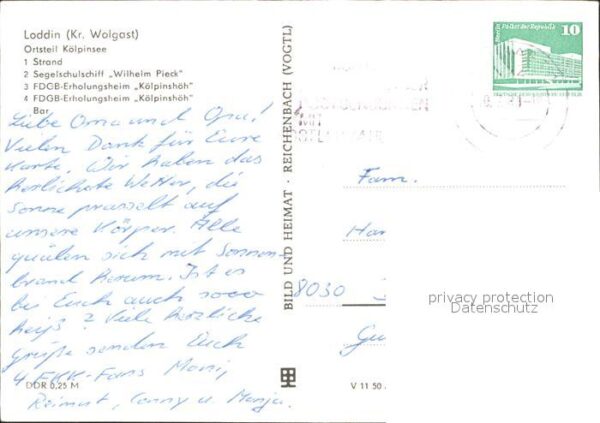 Loddin (Kr. Wolgast)
Ortsteil Kölpinsee
1 Strand
2 Segelschulschiff „Wilhelm Pieck"
3 FDGB-Erholungsheim „Kölpinshöh"
4 FDGB-Erholungsheim „Kölpinshöh"
Bar
Liebe Oma und Opa!
Vielen Dank für Eure
Karte. Wir haben das
herrlichste Wetter, die
Sonne prasselt auf
unsere Körper. Alle
quälen sich mit Sonnen-
brand herum. Ist es
bei Euch auch sooo
heiß? Viele herzliche
Grüße senden Euch
4 FKK-Fans Moni,
Reimut, Conny u. Manja.
DDR 0,25 M
BILD UND HEIMAT · REICHENBACH (VOGTL)
V 11 50
Berlin, Palast der Republik
10
MIT
Fam.
8030
privacy protection
Datenschutz